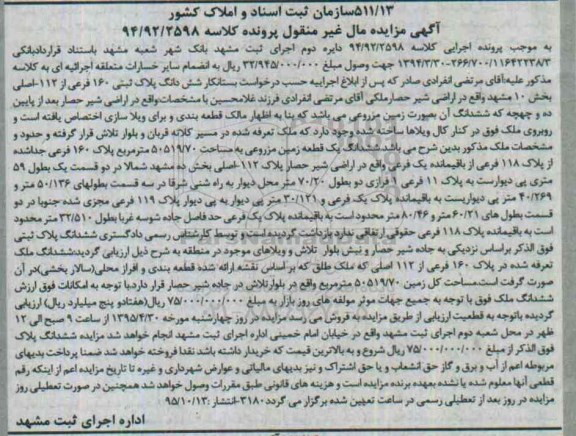 ۵۱۱/۱۳سازمان ثبت اسناد و املاک کشور
آگهی مزایده مال غیر منقول پرونده کلاسه ۹۴/۹۲/۲۵۹۸
به موجب پرونده اجرایی کلاسه ۹۴/۹۲/۲۵۹۸ دایره دوم اجرای ثبت مشهد بانک شهر شعبه مشهد باستناد قراردادبانکی
۲۶۶/۷۰۰/۱۱۶۴۲۲۳۸/۳-۱۳۹۴/۳/۳۰ جهت وصول مبلغ ۳۲/۹۴۵/۰۰۰/۰۰۰ ریال به انضمام سایر خسارات متعلقه اجرائیه ای به کلاسه
مذکور علیه:آقای مرتضی انفرادی صادر که پس از ابلاغ اجراییه حسب درخواست بستانکار شش دانگ پلاک ثبتی ۱۶۰ فرعی از ۱۱۲-اصلی
بخش ۱۰ مشهد واقع در اراضی شیر حصارملکی آقای مرتضی انفرادی فرزند غلامحسین با مشخصات:واقع در اراضی شیر حصار بعد از پایین
ده و چهچه که ششدانگ آن بصورت زمین مزروعی می باشد که بنا به اظهار مالک قطعه بندی و برای ویلا سازی اختصاص یافته است و
روبروی ملک فوق در کنار کال ویلاها ساخته شده وجود دارد که ملک تعرفه شده در مسیر کلاته قربان و بلوار تلاش قرار گرفته و حدود و
مشخصات ملک مذکور بدین شرح می باشد ششدانگ یک قطعه زمین مزروعی به مساحت ۵۰۵۱۹/۷۰ مترمربع پلاک ۱۶۰ فرعی جداشده
از پلاک ۱۱۸ فرعی از باقیمانده یک فرعی واقع در اراضی شیر حصار پلاک ۱۱۲-اصلی بخش ده مشهد شمالا در دو قسمت یک بطول ۵۹
متری پی دیواریست به پلاک ۱۱ فرعی ۲ فرازی دو بطول ۷۰/۲۰ متر محل دیوار به راه شنی شرقا در سه قسمت بطولهای ۵۰/۱۳۶ متر و
۴۰/۲۶۹ متر پی دیواریست به باقیمانده پلاک یک فرعی و ۳۰/۱۲۱ متر پی دیوار به پی دیوار پلاک ۱۱۹ فرعی مجزی شده جنوبا در دو
قسمت بطول های ۶۰/۲۱ متر و ۸۰/۴۶ متر محدود است به باقیمانده پلاک یک فرعی حد فاصل جاده شوسه غربا بطول ۳۲/۵۱۰ متر محدود
است به باقیمانده پلاک ۱۱۸ فرعی حقوقی ارتفاقی ندارد بازداشت گردیده است و توسط کارشناس رسمی دادگستری ششدانگ پلاک ثبتی
فوق الذکر براساس نزدیکی به جاده شیر حصار و نبش بلوار تلاش و ویلاهای موجود در منطقه به شرح ذیل ارزیابی گردید:ششدانگ ملک
تعرفه شده در پلاک ۱۶۰ فرعی از ۱۱۲ اصلی که ملک طلق که بر اساس نقشه ارائه شده قطعه بندی و افراز محلی(سالار بخشی)در آن
صورت گرفت است:مساحت کل زمین ۵۰۵۱۹/۷۰ مترمربع واقع در بلوارتلاش در جاده شیر حصار قرار دارد:با توجه به امکانات فوق ارزش
ششدانگ ملک فوق با توجه به جمیع جهات موثر مولفه های روز بازار به مبلغ ۷۵/۰۰۰/۰۰۰/۰۰۰ ریال(هفتادو پنج میلیارد ریال) ارزیابی
گردیده باتوجه به قطعیت ارزیابی از طریق مزایده به فروش می رسد مزایده در روز چهارشنبه مورخه ۱۳۹۵/۴/۳۰ از ساعت ۹ صبح الی ۱۲
ظهر در محل شعبه دوم اجرای ثبت مشهد واقع در خیابان امام خمینی اداره اجرای ثبت مشهد انجام خواهد شد مزایده ششدانگ پلاک
فوق الذکر از مبلغ ۷۵/۰۰۰/۰۰۰/۰۰۰ ریال شروع و به بالاترین قیمت که خریدار داشته باشد نقدا فروخته خواهد شد ضمنا پرداخت بدیهای
مربوطه اعم از آب و برق و گاز حق انشعاب و یا حق اشتراک و نیز بدیهای مالیاتی و عوارض شهرداری و غیره تا تاریخ مزایده اعم از اینکه رقم
قطعی آنها معلوم شده یا نشده بعهده برنده مزایده است و هزینه های قانونی طبق مقررات وصول خواهد شد همچنین در صورت تعطیلی روز
مزایده در روز بعد از تعطیلی رسمی در ساعت تعیین شده برگزار می گردد-۳۱۸۰-انتشار:۹۵/۱۰/۱۳
اداره اجرای ثبت مشهد